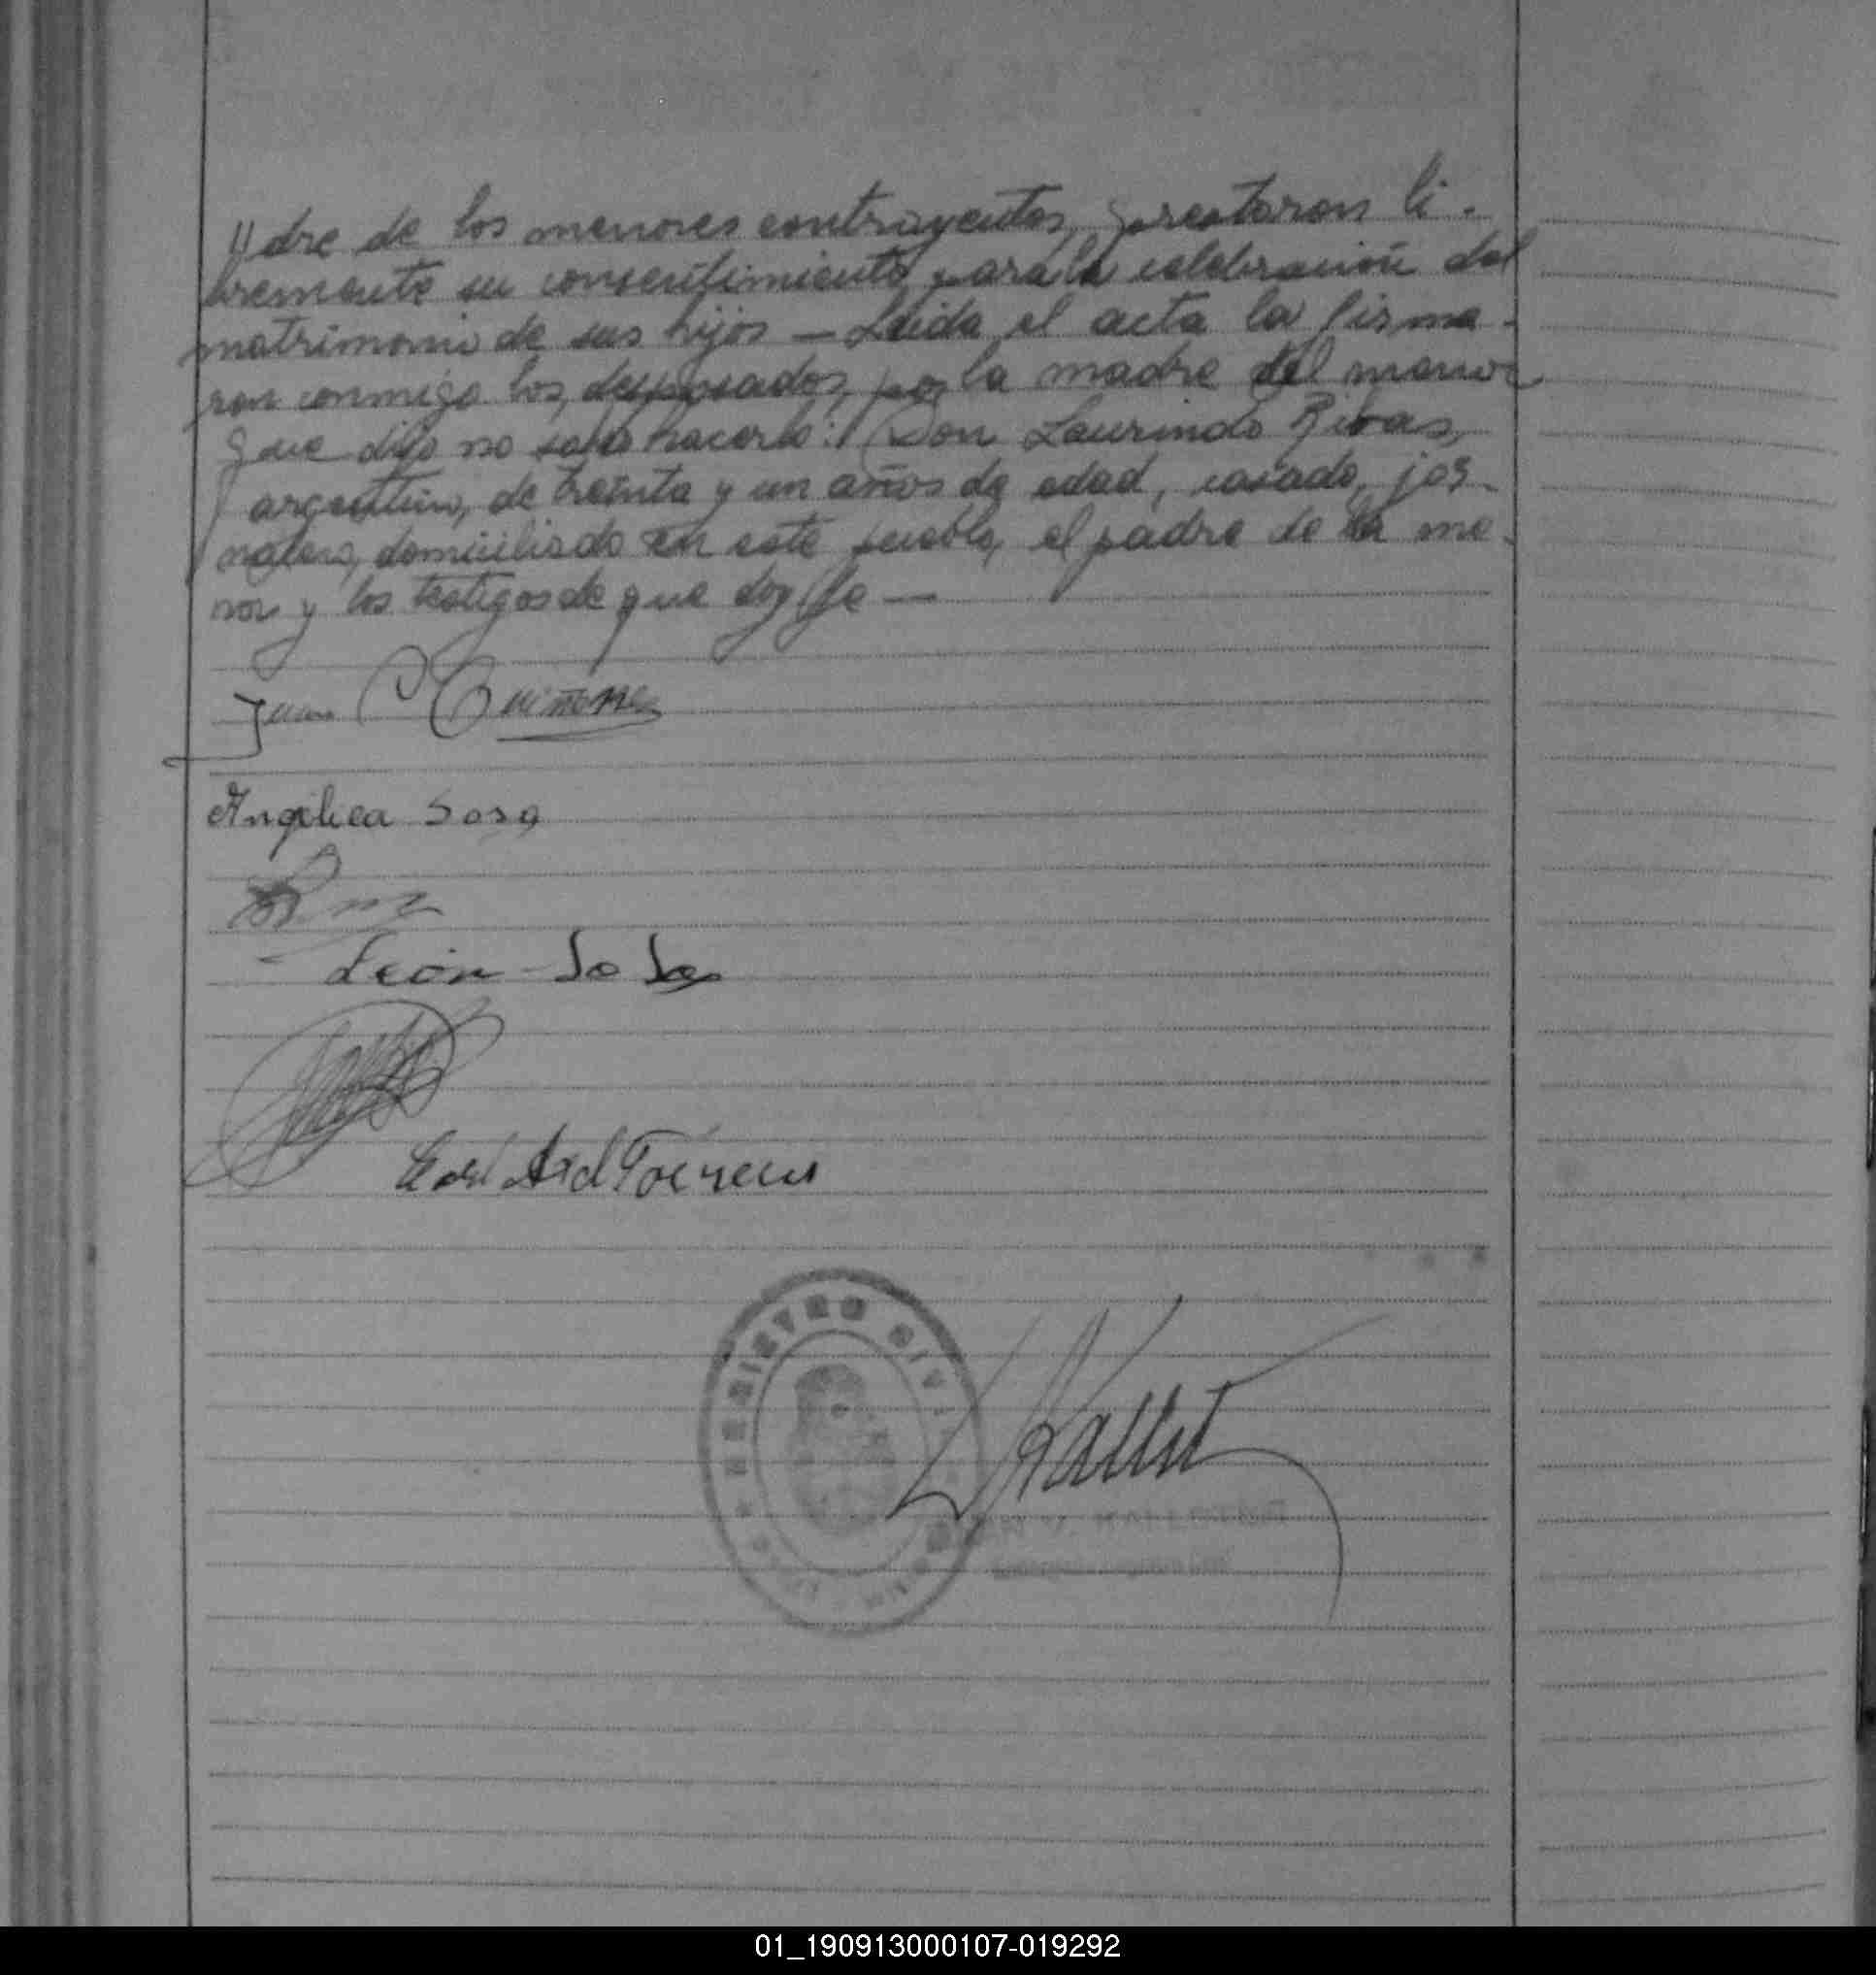 "dre de los menores contrayentes, prestaron li-
bremente su consentimiento para la celebración del
matrimonio de sus hijos — Leida el acta la firma-
ron conmigo los desposados, por la madre del menor
que dijo no saber hacerlo: Don Laurindo Ribas,
argentino, de treinta y un años de edad, casado, jor-
nalero, domiciliado en este pueblo, el padre de la me-
nor y los testigos de que doy fe —
Juan C Quiñones
Angelica Sosa
León Sosa
REGISTRO CIVIL
01_190913000107-019292